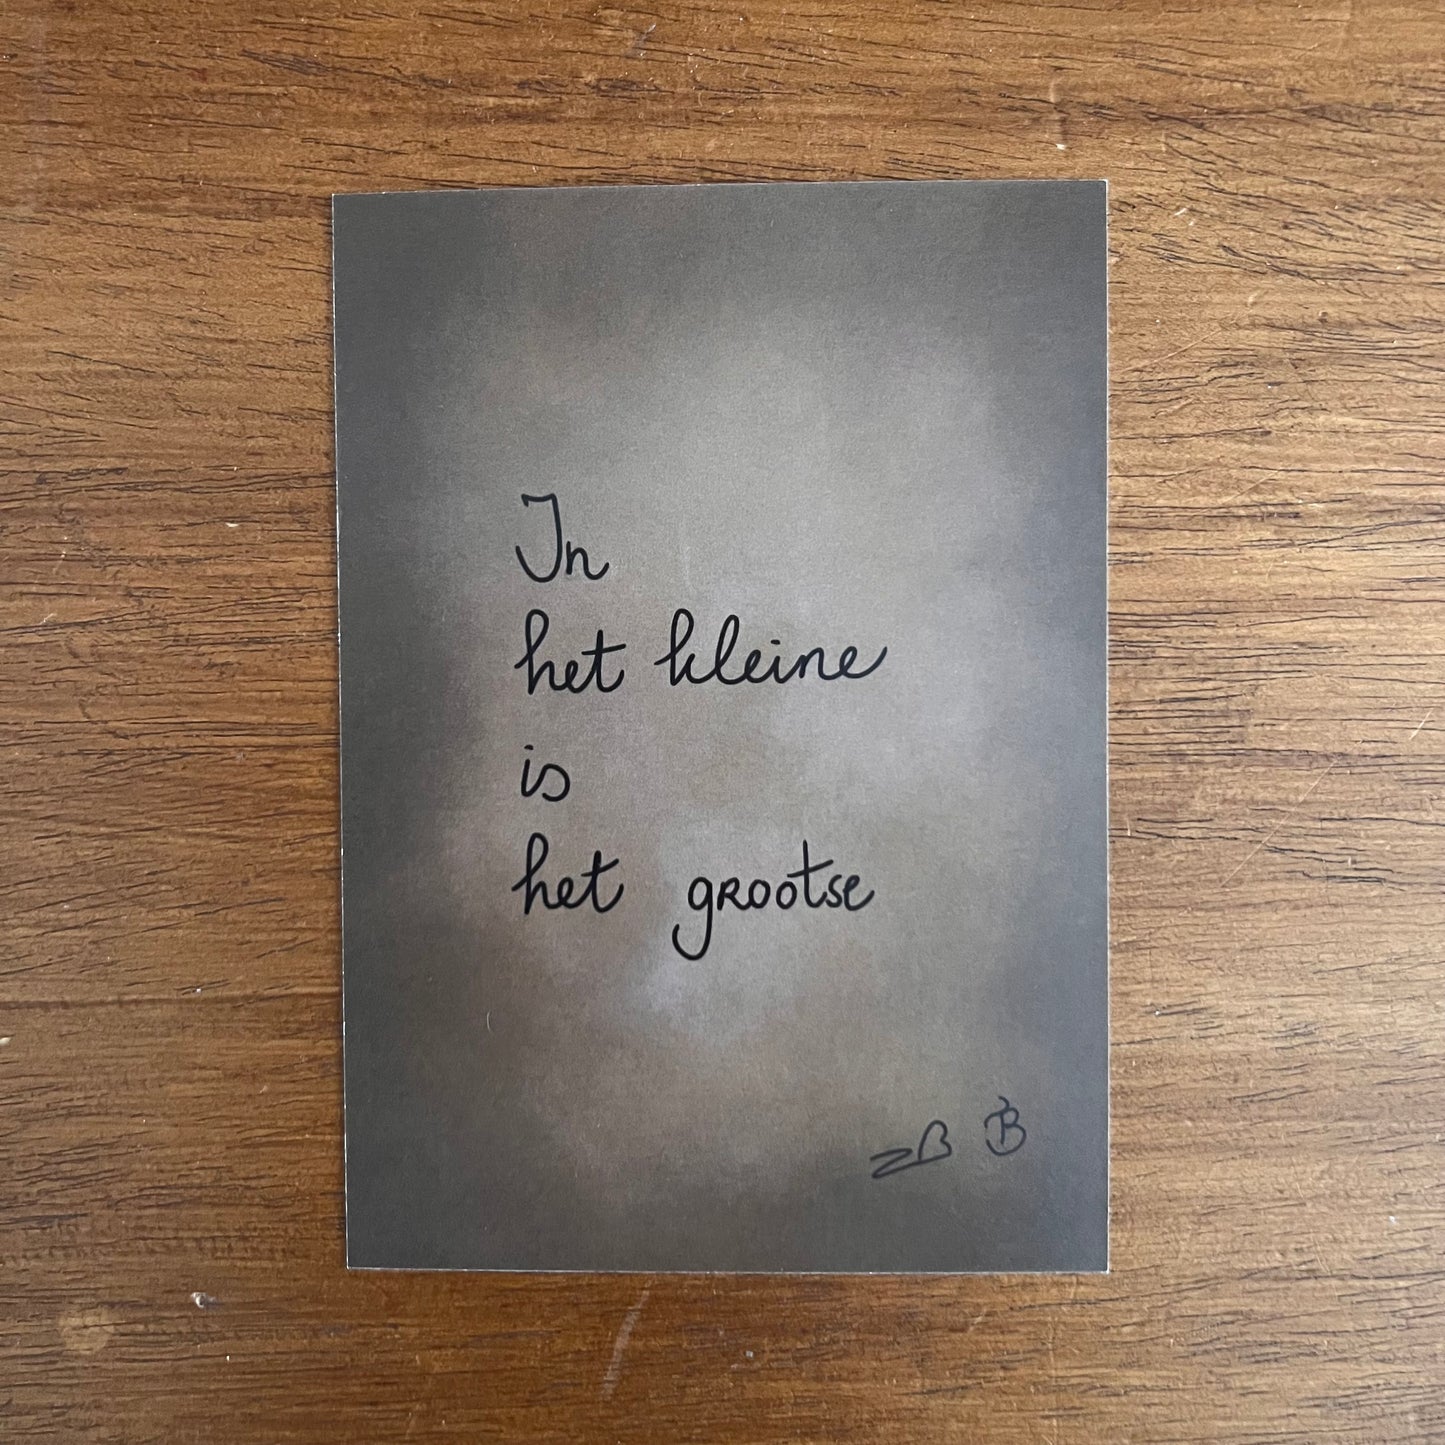 In
het kleine
is
het grootse